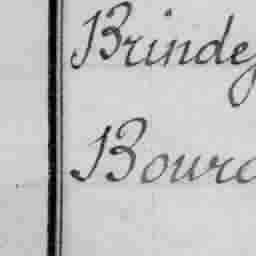 Brinde
Bour